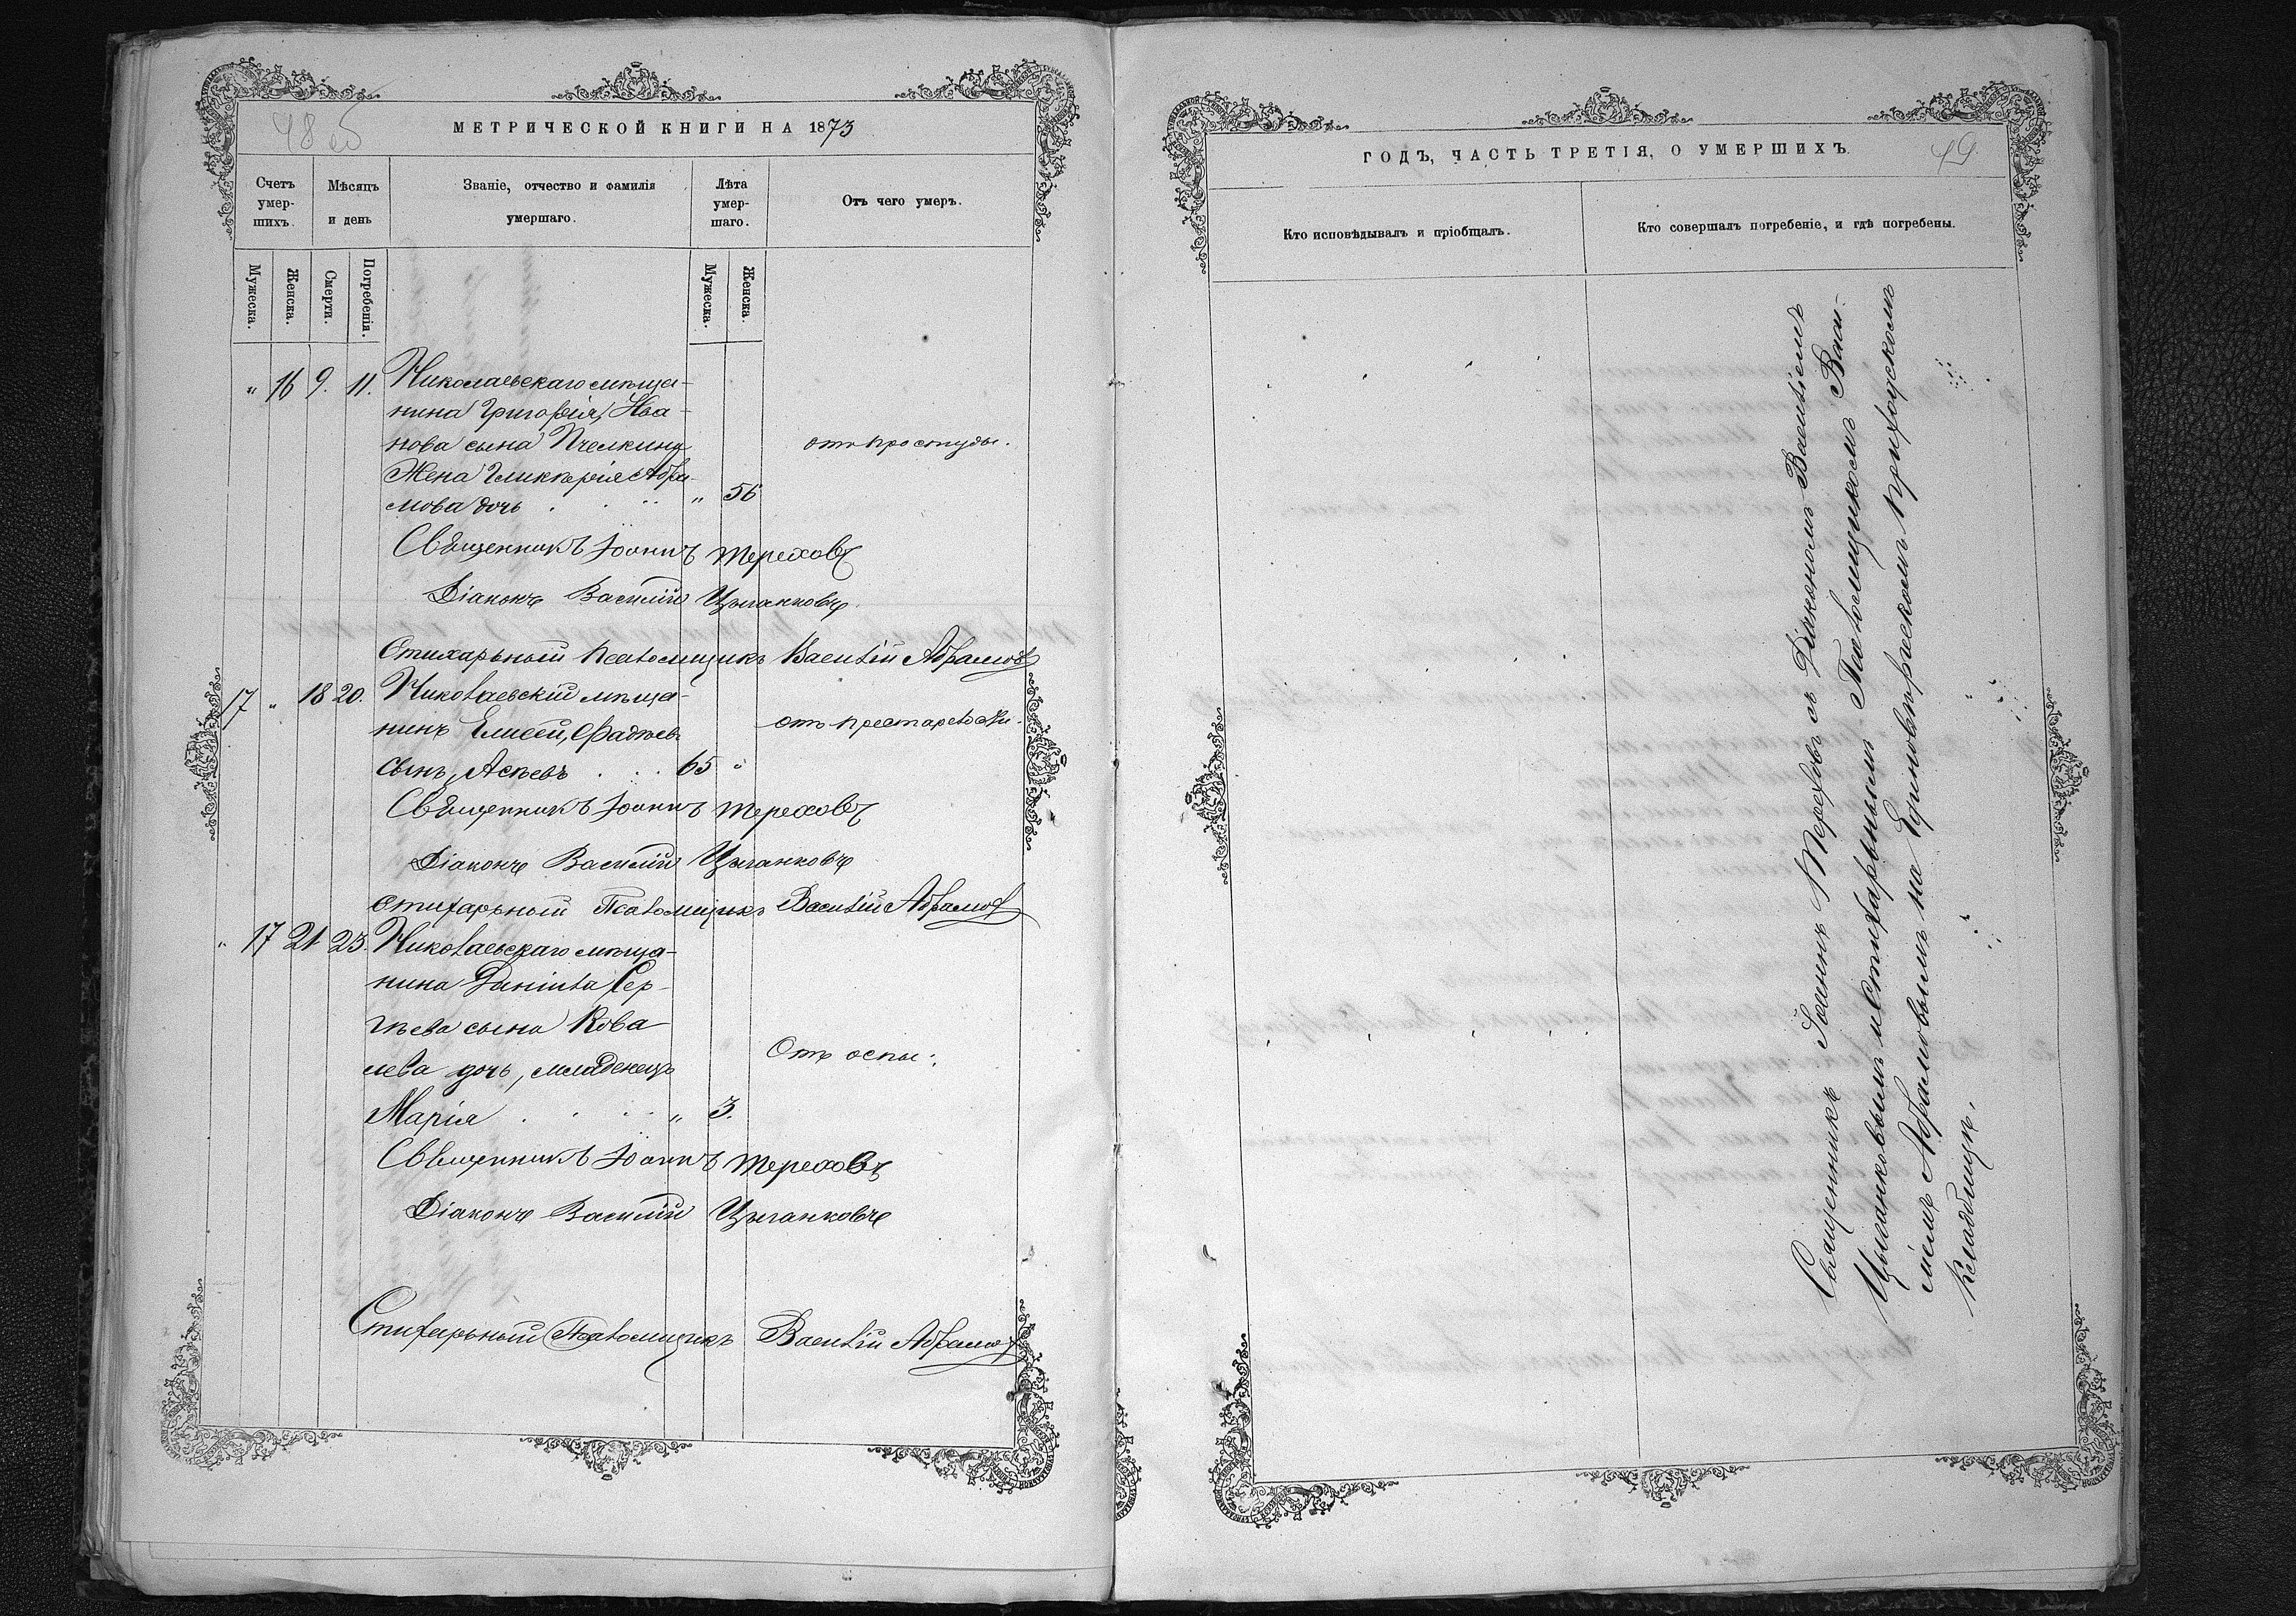 48 об
МЕТРИЧЕСКОЙ КНИГИ НА 1873
Счетъ умер-шихъ.
Мѣсяцъ и день
Званіе, отчество и фамилія умершаго.
Лѣта умер-шаго.
Отъ чего умеръ.
Мужеска.
Женска.
Смерти.
Погребенія.
Мужеска.
Женска.
„ 16 9. 11. Николаевскаго мѣща-
нина Григорія, Ива-
нова сына Пчелкина
от простуды.
Жена Гликерія Абра-
мова дочь . . . „ 56
Священникъ Іоаннъ Тереховъ
Діаконъ Василій Цыганковъ
Стихарьный псаломщикъ Василій Абрамовъ
17 „ 18 20. Николаевскій мѣща-
нинъ Елисей, Фадѣевъ
от престарелости.
сынъ, Асѣевъ . . . 65 „
Священникъ Іоаннъ Тереховъ
Діаконъ Василій Цыганковъ
Стихарьный Псаломщикъ Василій Абрамовъ
„ 17 21 23. Николаевскаго мѣща-
нина Даніила Сер-
гѣева сына Кова-
лева дочь, младенецъ
Отъ оспы.
Марія . . . . „ 3.
Священникъ Іоаннъ Тереховъ
Діаконъ Василій Цыганковъ
Стихарьный Псаломщикъ Василій Абрамовъ
ГОДЪ, ЧАСТЬ ТРЕТІЯ, О УМЕРШИХЪ.
49.
Кто исповѣдывалъ и пріобщалъ.
Кто совершалъ погребеніе, и гдѣ погребены.
Священникъ Іоаннъ Тереховъ съ Діакономъ Василіемъ
Цыганковымъ и Стихарьнымъ Псаломщикомъ Васи-
ліемъ Абрамовымъ на Единовѣрческомъ приходскомъ
кладбищѣ.